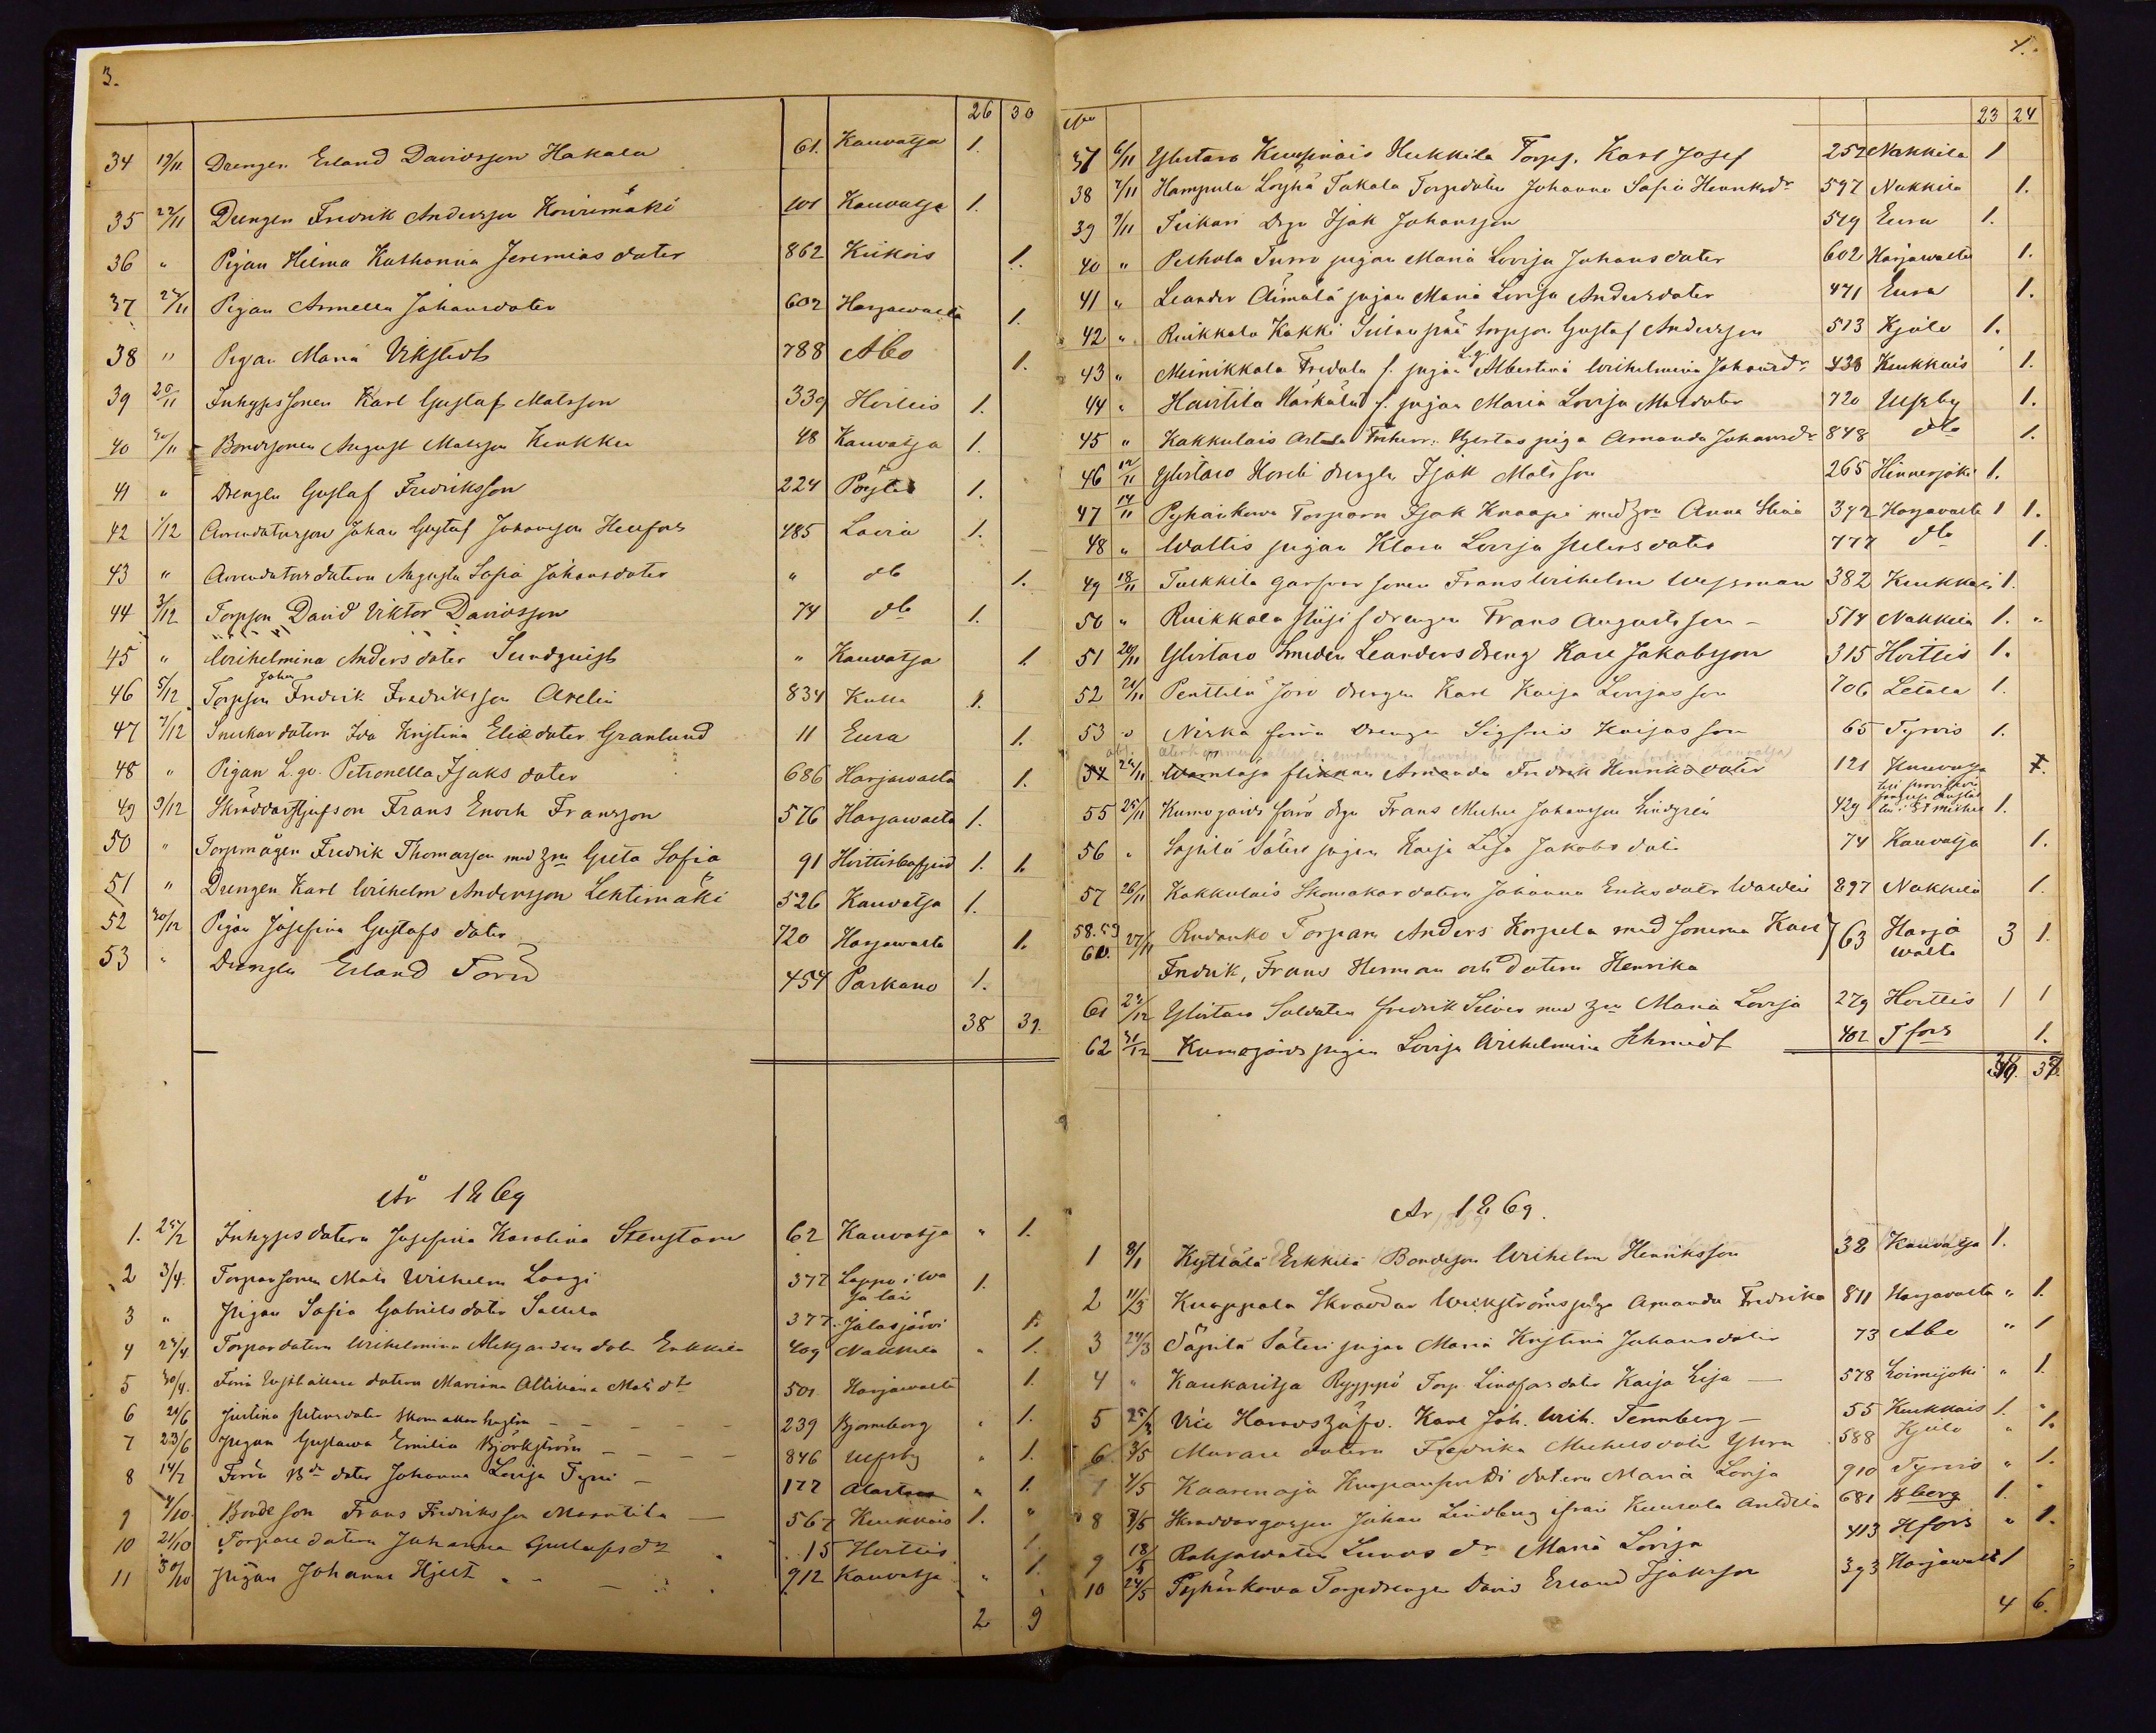 3.
26 30
34 19/11 Drengen Erland Davidsson Hakala 61. Kauvatsa 1.
35 22/11 Drengen Fredrik Andersson Kouvimäki 101 Kauvatsa 1.
36 " Pigan Hilma Katharina Jeremias doter 862 Kiikois 1.
37 24/11 Pigan Armella Johansdoter 602 Harjawalta 1.
38 " Pigan Maria Vikstedt 788 Abo 1.
39 25/11 Inhysessonen Karl Gustaf Matsson 339 Hvittis 1.
40 30/11 Bondsonen August Matsson Kiukku 48 Kauvatsa 1.
41 " Drengen Gustaf Fredriksson 224 Pöytis 1.
42 1/12 Arrendatorson Johan Gustaf Johansson Heufors 485 Lavia 1.
43 " Arrendators dotern Augusta Sofia Johansdoter " do 1.
44 3/12 Torpson David Viktor Davidsson 74 do 1.
45 " Wilhelmina Anders doter Sundquist " Kauvatsa 1.
46 5/12 Torpson Johan Fredrik Fredriksson Avelin 834 Kulla 1.
47 7/12 Snickar dotern Ida Kristina Elie doter Granlund 11 Eura 1.
48 " Pigan L.gv. Petronella Isaks doter 686 Harjawalta 1.
49 9/12 Skräddar styfson Frans Enoch Fransson 576 Harjawalta 1.
50 " Torpmågen Fredrik Thomasson med hru Greta Sofia 91 Hvittisbofjerd 1. 1.
51 " Drengen Karl Wilhelm Andersson Lehtimäki 526 Kauvatsa 1.
52 30/12 Pigan Josefina Gustafs doter 720 Harjawalta 1.
53 " Drengen Erland Törn 454 Parkano 1.
38 39.
År 1869
1. 25/2 Inhyses dotern Josefina Karolina Stenstam 62 Kauvatsa " 1.
2 3/4. Torparsonen Mats Wilhelm Laagi 377 Lappo i Wa
sa län 1.
3 " Pigan Sofia Gabriels doter Sallila 377. Jalasjärvi 1.
4 24/4 Torpardotern Wilhelmina Alexanders doter Erkkilä 409 Nakkila " 1.
5 30/4. Mariana Mats dr 501 Harjawalta 1.
6 21/6 Justina Peters doter 239 Bjorneborg " 1.
7 23/6 Pigan Gustawa Emilia Björkström 846 Ulfsby " 1.
8 14/7 Förra Bde doter Johanna Lovisa Tyni 177 Alastaro " 1.
9 4/10. Bondeson Frans Fredriksson Marttila 567 Kiukkais 1. "
10 21/10 Torpare dotern Johanna Gustafs dr 15 Hvittis 1.
11 30/10 Pigan Johanna Hjelt 912 Kauvatsa " 1.
2 9
4.
No 23 24
37 6/11 Ylistaro Kuusinais Heikkilä Torps. Karl Josef 252 Nakkila 1
38 7/11 Hampula Löyhä Takala Torpdoter Johanna Sofia Henriksdr 597 Nakkila 1.
39 9/11 Teikari Drgn Isak Johansson 519 Eura 1.
40 " Pelhola Turro pigan Maria Lovisa Johansdoter 602 Harjawalta 1.
41 " Leander Äimälä pigan Maria Lovisa Andersdoter 471 Eura 1.
42 " Ruikkala Kakki torpson Gustaf Andersson 513 Kjulo 1.
43 " Meinikkala Fredula f. pigan L.gv. Albertina Wilhelmina Johansdr 438 Kiukkais 1.
44 " Haistila Härkälä f. pigan Maria Lovisa Matsdoter 720 Ulfsby 1.
45 " Kakkulais piga Amanda Johansdr 848 do 1.
46 12/11 Ylistaro drengen Isak Matsson 265 Hinnerjoki 1.
47 14/11 Pyhänkorva Torparn Isak Knaapi med hru Anna Stina 392 Harjavalta 1 1.
48 " Wallis pigan Klara Lovisa Peters doter 777 do 1.
49 18/11 Tulkkila sonen Frans Wilhelm Wessman 382 Kiukkais 1.
50 " Ruikkala drengen Frans August son 514 Nakkila 1. "
51 20/11 Ylistaro Smeden Leanders dreng Karl Jakobsson 315 Hvittis 1.
52 21/11 Penttilä Jori drengen Karl Kaisa Lovisas son 706 Letala 1.
53 " Nirka förra Drengen Sigfrid Kaisas son 65 Tyrvis 1.
(54 24/11 flickan Amanda Fredrik Henriksdoter 121 Kauvatsa 1.
55 25/11 Kumogårds förra drgn Frans Michel Johansson Lindgrén 429 St Michel 1.
56 " Säpilä Säteri pigan Kaisa Lisa Jakobs doter 74 Kauvatsa 1.
57 26/11 Kakkulais Skomakar dotern Johanna Eriksdoter Walden 897 Nakkila 1.
58. 59
60. 27/11 Rudanko Torparn Anders Korpela med sönerna Karl
Fredrik, Frans Herman och Dotern Henrika 63 Harja
walta 3 1.
61 29/12 Ylistaro Soldaten Fredrik Silver med hru Maria Lovisa 279 Hvittis 1 1
62 31/12 Kumogårds pigan Lovisa Wilhelmina Schmidt 402 Tfors 1.
År 1869.
1 8/1 Kyttälä Erkkilä Bondeson Wilhelm Henriksson 38 Kauvatsa 1.
2 11/3 Knuppala Skräddar Weckströms piga Amanda Fredrika 811 Harjavalta " 1.
3 24/3 Säpilä Säteri pigan Maria Kristina Johansdoter 73 Abo " 1
4 " Kaukaritsa Ryyppö Torp. Lindfors doter Kaisa Lisa 578 Loimijoki " 1.
5 25/3 Vice Häradshöfd. Karl Joh. Wilh. Tennberg 55 Kiukkais 1. "
6. 3/5 Murare dotern Fredrika Michelsdoter Ylinen 588 Kjulo " 1.
7 4/5 Kaarenoja dotern Maria Lovisa 910 Tyrvis " 1.
8 8/5 Skräddargossen Johan Lindberg ifrån Kuurola Anttila 681 Bberg 1. "
9 18/5 dr Maria Lovisa 413 Hfors " 1.
10 24/5 Pyhänkorva Torpdrengen David Erland Isaksson 393 Harjawalta 1
4 6.